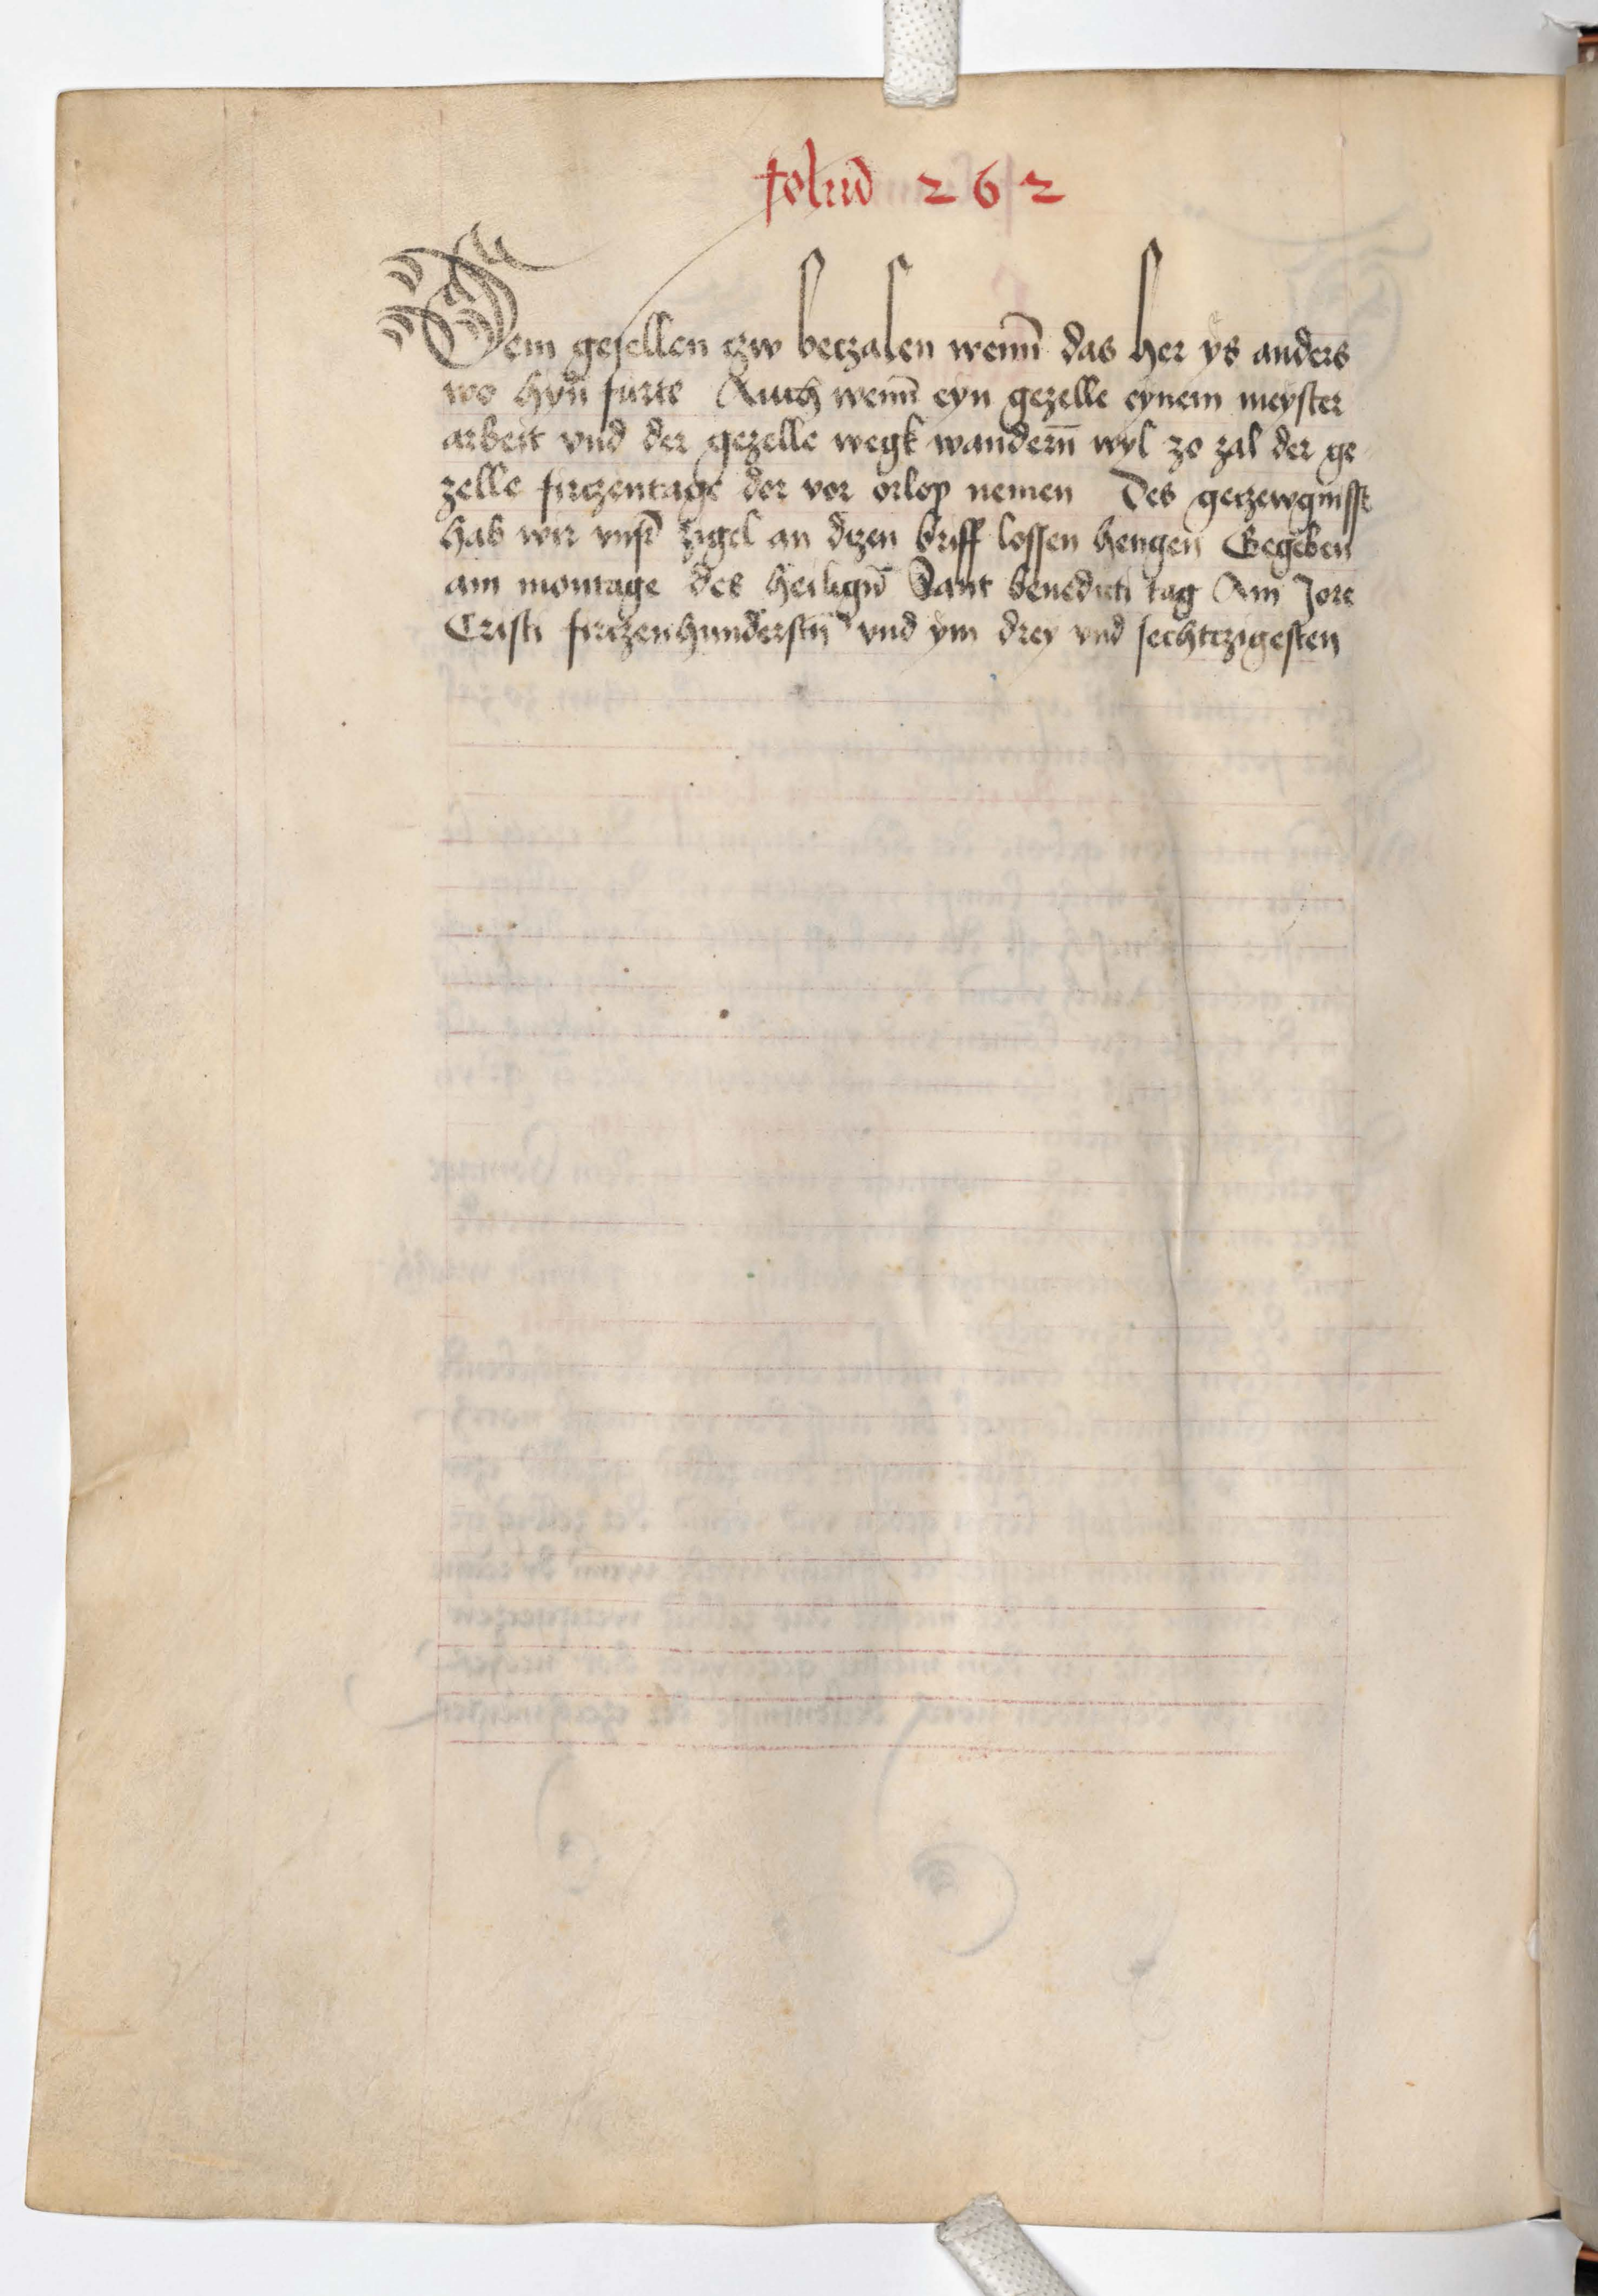 foliu̅ 262
Dem gesellen czw beczalen wenn̄ das her ys anders
wo hyn̄ furte Auch wenn̄ eyn gezelle eynem meyster
arbeit vnd der gezelle wegk wandern̄ wyl zo zal der ge
zelle firczentage dor vor orlop nemen Des geczewgnisse
hab wir vnser̄ zigel an dizen briff lossen hengen Gegeben
am montage des heilign̄ Sant benedicti tag Am Jore
Cristi firczenhunderstn̄ vnd ym drey vnd sechtczigesten